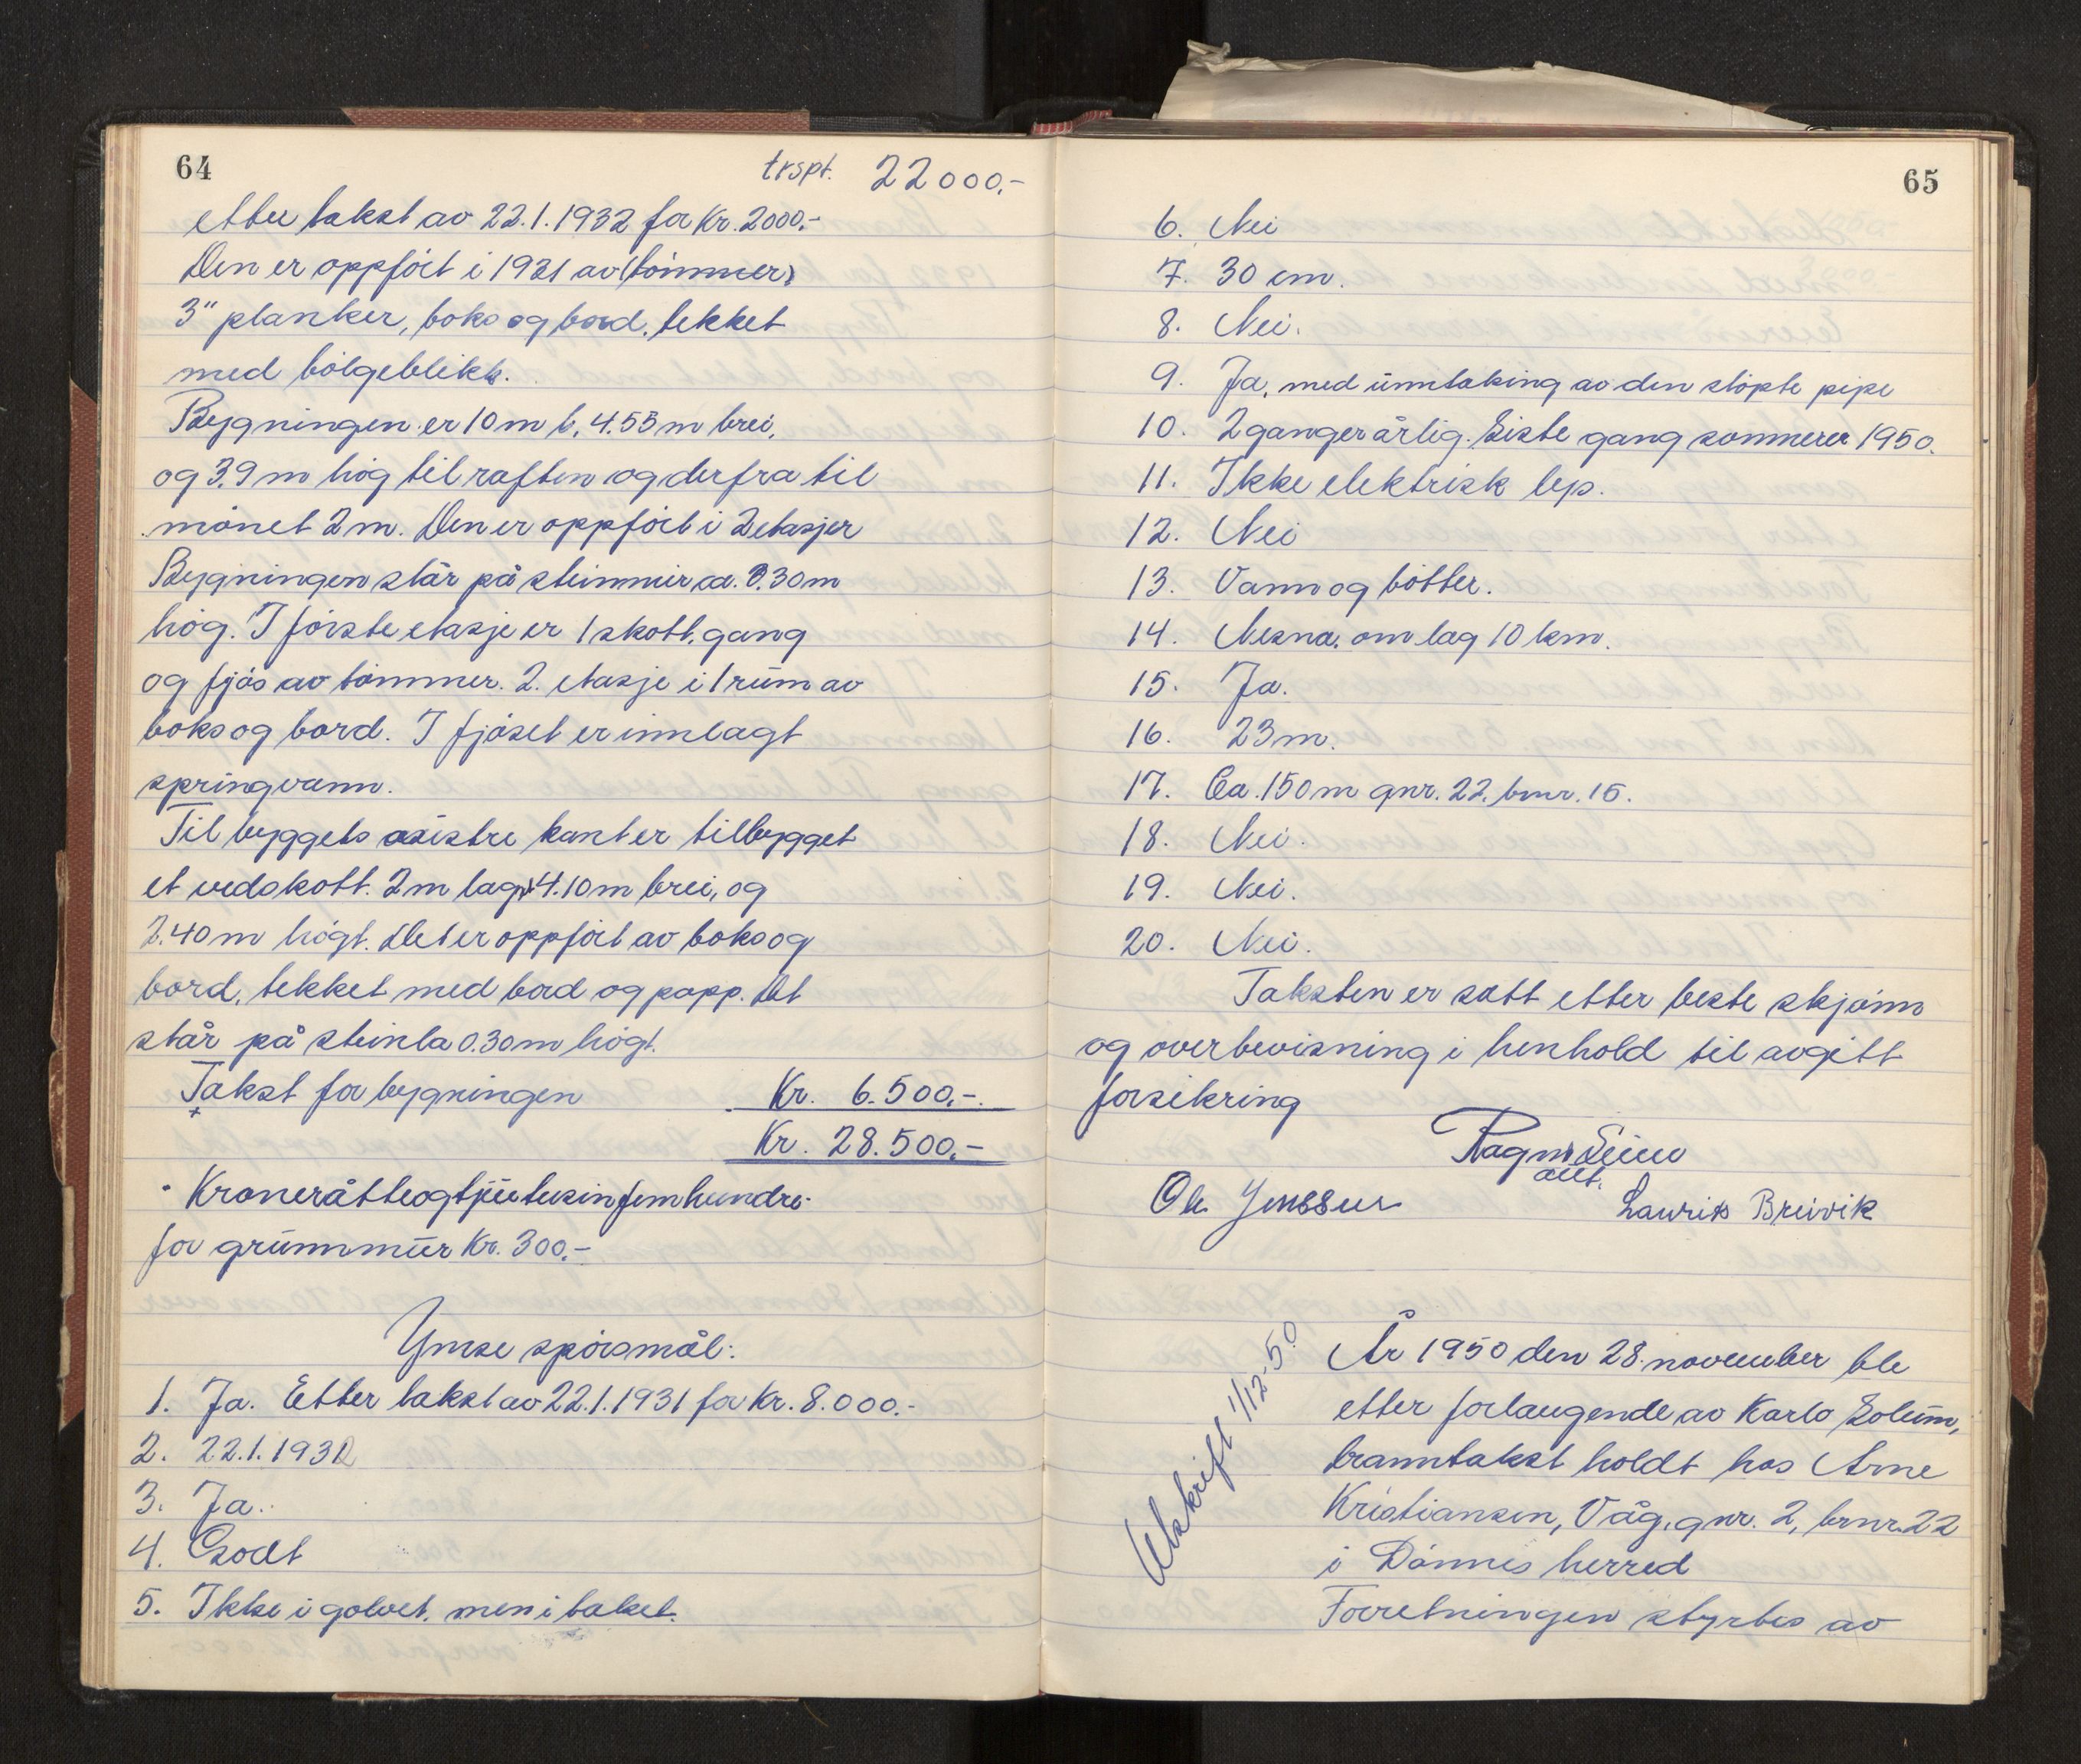 64
trspt. 22000.-
etter takst av 22.1.1932 for Kr. 2000.-
Den er oppfört i 1931 av (tömmer)
3" planker, boks og bord, tekket
med bölgeblikk.
Bygningen er 10 m l. 4.55 m brei,
og 3.9 m hög til raften og derfra til
mönet 2 m. Den er oppfört i 2 etasjer
Bygningen står på steinmur ca. 0.30 m
hög. I förste etasje er 1 skott, gang
og fjös av tömmer. 2. etasje i 1 rum av
boks og bord. I fjöset er innlagt
springvann.
Til byggets östre kant er tilbygget
et vedskott. 2 m lag, 4.10 m brei, og
2.40 m högt. Det er oppfört av boks og
bord, tekket med bord og papp. Det
står på steinla 0.30 m högt.
Takst for bygningen Kr. 6.500.-
Kr. 28.500.-
Kroneråtteogtjuetusinfemhundre
for grunnmur Kr. 300.-
Ymse spörsmål:
1. Ja. Etter takst av 22.1.1931 for Kr. 8.000.-
2. 22.1.1932
3. Ja.
4. Godt
5. Ikke i golvet, men i taket.
65
6. Nei
7. 30 cm.
8. Nei.
9. Ja, med unntaking av den stöpte pipe
10. 2 ganger årlig. Siste gang sommeren 1950.
11. Ikke elektrisk lys.
12. Nei
13. Vann og bötter.
14. Nesna, om lag 10 km.
15. Ja.
16. 23 m.
17. Ca. 150 m gnr. 22. bnr. 15.
18. Nei.
19. Nei.
20. Nei.
Taksten er satt etter beste skjönn
og overbevisning i henhold til avgitt
forsikring
Ragnv.
Ole Jenssen Laurits Breivik
Utskrift 1/12-50
År 1950 den 28. november ble
etter forlangende av Karlo Solum,
branntakst holdt hos Arne
Kristiansen, Våg, gnr. 2, brnr. 22
i Dönnes herred
Forretningen styrtes av